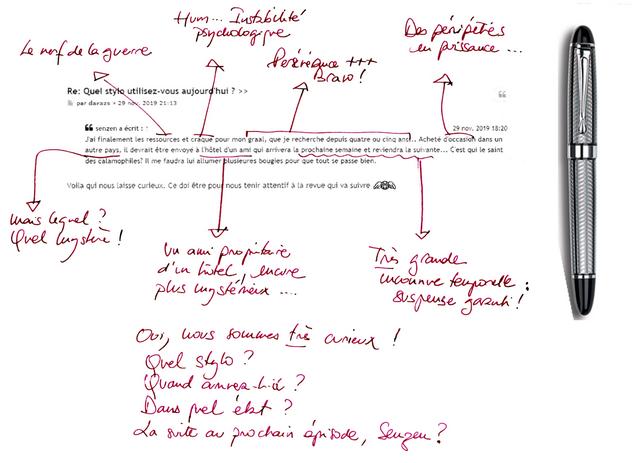 Hum... Instabilité
psychologique
Le nerf de la guerre
Persévérance +++
Bravo !
Des péripéties
en puissance ...
Re: Quel stylo utilisez-vous aujourd'hui ? >>
par darazs » 29 nov. 2019 21:13
senzen a écrit : ↑ 29 nov. 2019 18:20
J'ai finalement les ressources et craqué pour mon graal, que je recherche depuis quatre ou cinq ans... Acheté d'occasion dans un
autre pays, il devrait être envoyé à l'hôtel d'un ami qui arrivera la prochaine semaine et reviendra la suivante... C'est qui le saint
des calamophiles? Il me faudra lui allumer plusieures bougies pour que tout se passe bien.
Voila qui nous laisse curieux. Ce doi être pour nous tenir attentif à la revue qui va suivre
mais lequel ?
Quel mystère !
Un ami propriétaire
d'un hôtel, encore
plus mystérieux ....
Très grande
inconnue temporelle :
suspense garanti !
Oui, nous sommes très curieux !
Quel stylo ?
Quand arrivera-t-il ?
Dans quel état ?
La suite au prochain épisode, Senzen ?